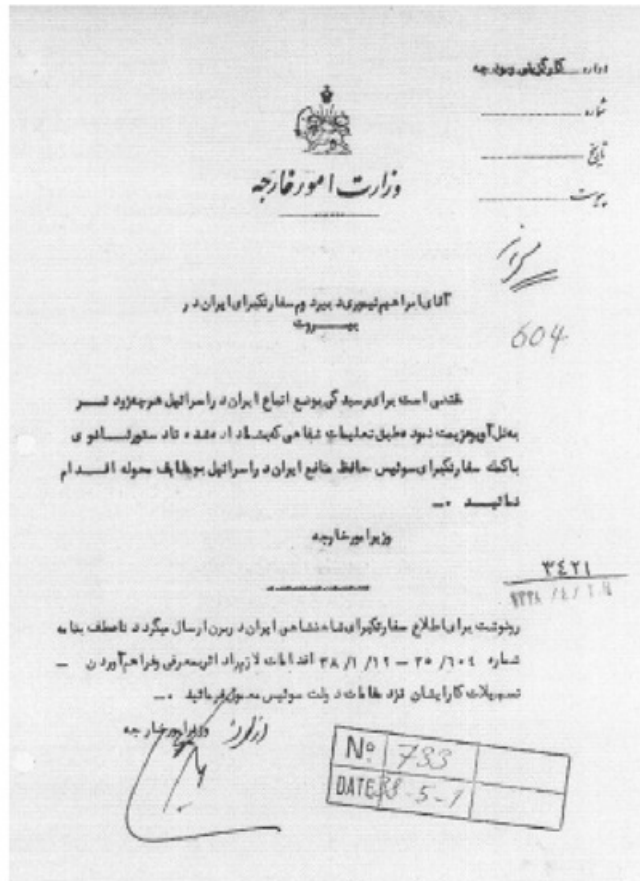 اداره کارگزینی وبودجه
شماره
تاریخ
پیوست
وزارت امور خارجه
604
آقای ابراهیم تیموری دبیر دوم سفارتکبرای ایران در
بیروت
مقتضی است برای رسیدگی بوضع اتباع ایران در اسرائیل هرچه زود تر
به تل آویو عزیمت نمود مطابق تعلیمات شفاهی که بشما داده شده تا دستور ثانوی
با کمک سفارتکبرای سوئیس حافظ منافع ایران در اسرائیل بوظایف محوله اقدام
نمائید ٠ــ
وزیر امور خارجه
٣٤٢١
رونوشت برای اطلاع سفارتکبرای شاهنشاهی ایران در برن ارسال میگردد تا عطف بنامه
شماره ٢٥/٦٠٤ – ٣٨/١/١٩ اقدامات لازم برای معرفی وفراهم آوردن –
تسهیلات کار ایشان نزد مقامات دولت سوئیس معمول فرمائید ٠ــ
از طرف وزیر امور خارجه
Nº 733
DATE 38-5-1